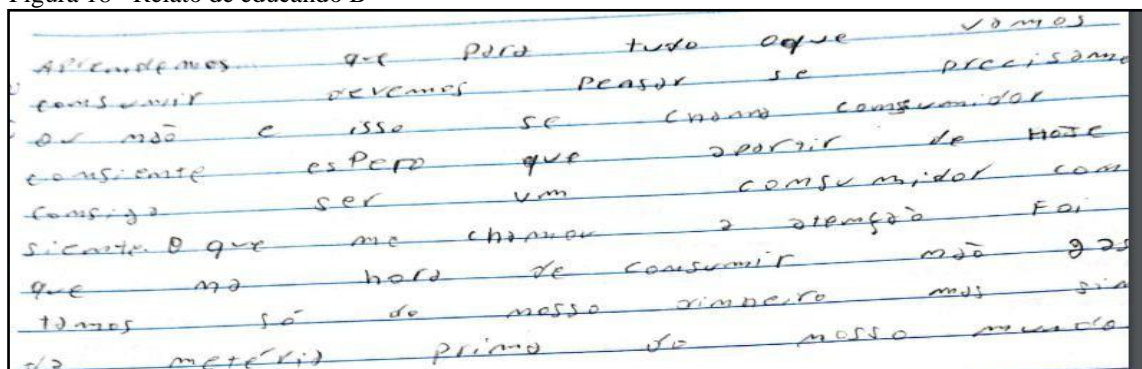 Figura 18 - Relato de educando B
Aprendemos que para tudo oque vamos
comsumir devemos pensar se precisamo
ou não e isso se chama comsumidor
consiente espero que apartir de Hoje
comsiga ser um comsumidor com
siente. O que me chamou a atemção Foi
que na hora de consumir não gas
tamos só do nosso dinheiro mas sim
da metéria prima do nosso mundo